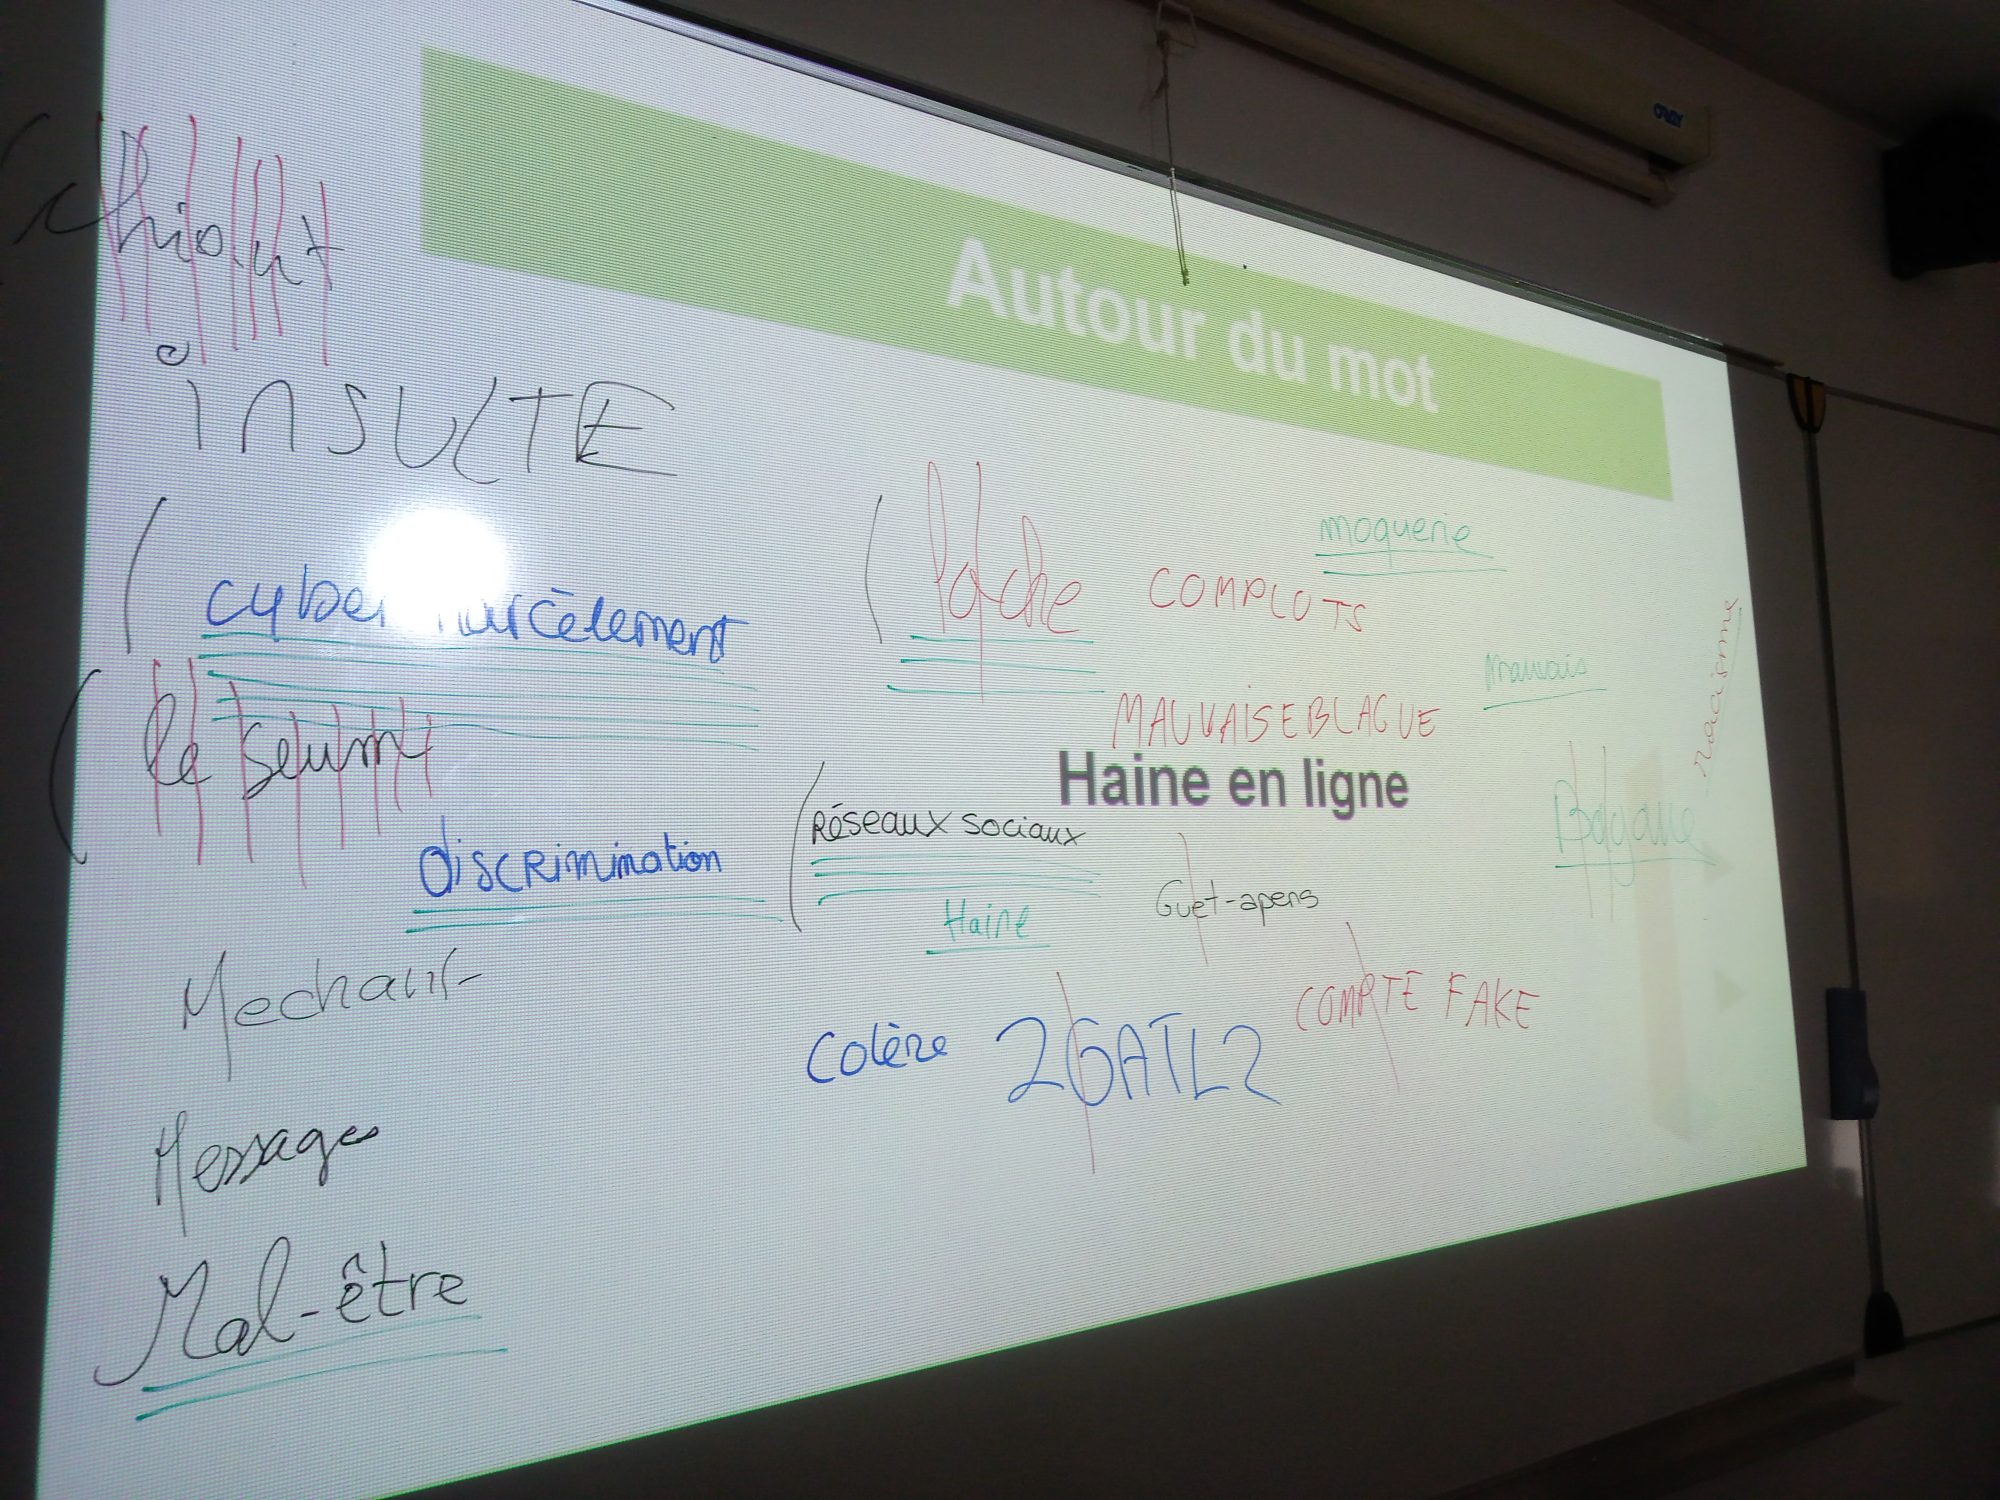 ORAY
Autour du mot
iNSULTE
moquerie
lâche
COMPLOTS
cyberharcèlement
mauvais
Racisme
MAUVAISE BLAGUE
le seum
Haine en ligne
RéSeaux sociaux
discrimination
Guet-apens
Haine
Mechant
COMPTE FAKE
Colère
2GATL2
Messages
Mal-être